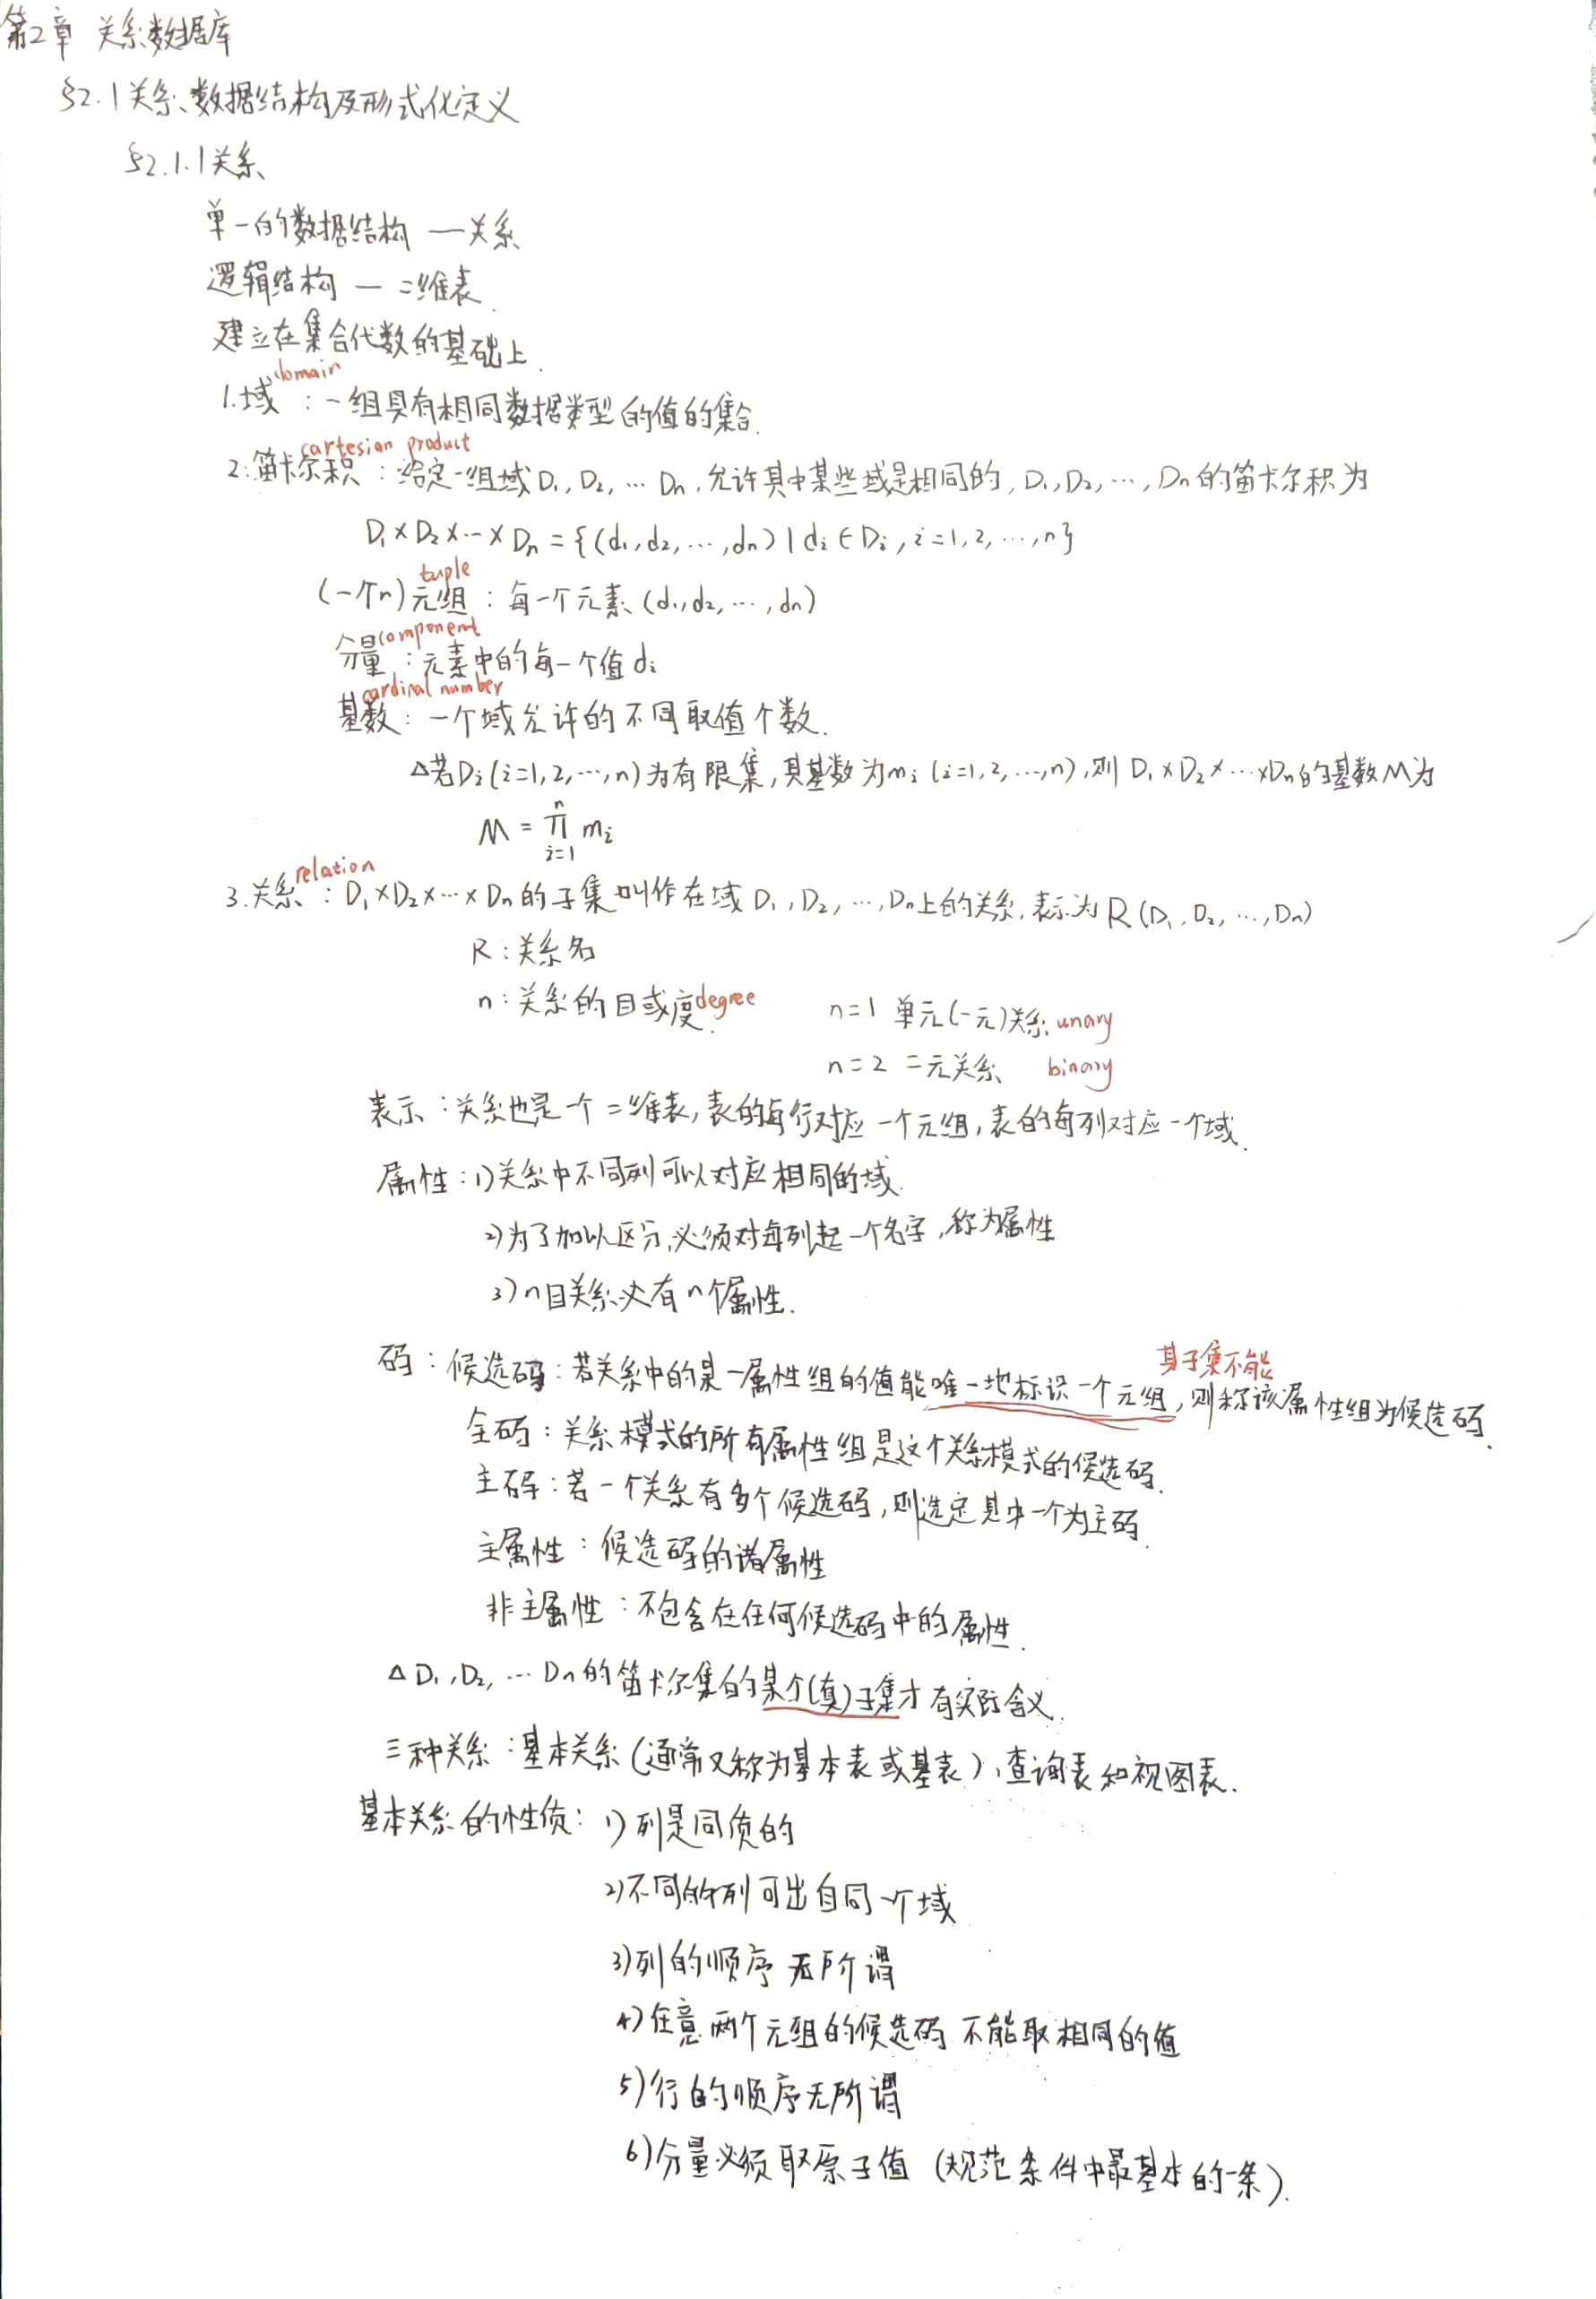 第2章 关系数据库
§2.1 关系数据结构及形式化定义
§2.1.1 关系
单一的数据结构 — 关系
逻辑结构 — 二维表.
建立在集合代数的基础上.
1.域domain：一组具有相同数据类型的值的集合.
2.笛卡尔积cartesian product：给定一组域D₁, D₂, … Dn, 允许其中某些域是相同的, D₁, D₂, …, Dn的笛卡尔积为
D₁×D₂×…×Dn = {(d₁,d₂,…,dn) | di∈Di, i=1,2,…,n}
(一个n)元组tuple：每一个元素(d₁,d₂,…,dn)
分量component：元素中的每一个值di
基数cardinal number：一个域允许的不同取值个数.
△若Di(i=1,2,…,n)为有限集,其基数为mi (i=1,2,…,n),则D₁×D₂×…×Dn的基数M为
M = ∏ⁿᵢ₌₁ mi
3.关系relation：D₁×D₂×…×Dn的子集叫作在域D₁,D₂,…,Dn上的关系,表示为R(D₁,D₂,…,Dn)
R：关系名
n：关系的目或度degree. n=1 单元(一元)关系 unary
n=2 二元关系 binary
表示：关系也是一个二维表,表的每行对应一个元组,表的每列对应一个域.
属性：1)关系中不同列可以对应相同的域.
2)为了加以区分,必须对每列起一个名字,称为属性
3)n目关系必有n个属性.
其子集不能
码：候选码：若关系中的某一属性组的值能唯一地标识一个元组,则称该属性组为候选码.
全码：关系模式的所有属性组是这个关系模式的候选码.
主码：若一个关系有多个候选码,则选定其中一个为主码.
主属性：候选码的诸属性
非主属性：不包含在任何候选码中的属性.
△D₁,D₂,…Dn的笛卡尔集的某个(真)子集才有实际含义.
三种关系：基本关系(通常又称为基本表或基表)、查询表和视图表.
基本关系的性质：1)列是同质的
2)不同的列可出自同一个域
3)列的顺序无所谓
4)任意两个元组的候选码不能取相同的值
5)行的顺序无所谓
6)分量必须取原子值 (规范条件中最基本的一条).